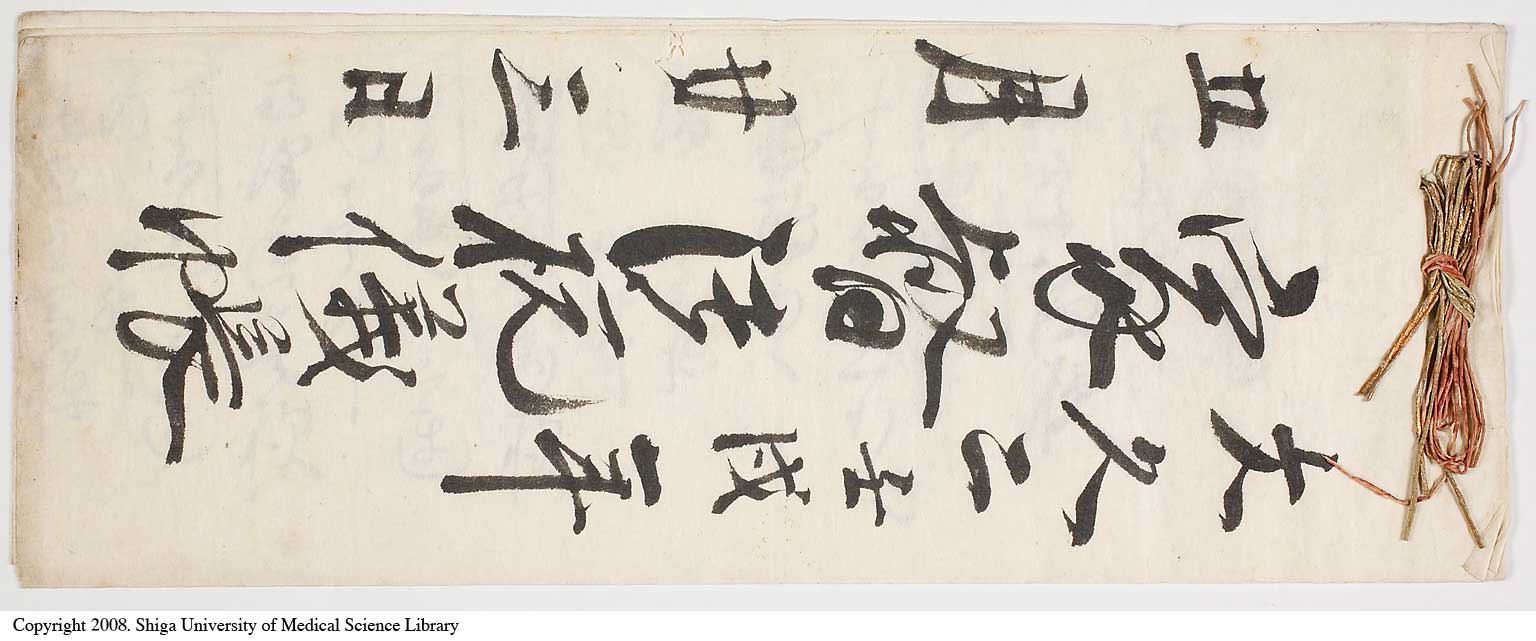 文久二壬戌年
家督 祝儀帳
五月廿三日
Copyright 2008. Shiga University of Medical Science Library